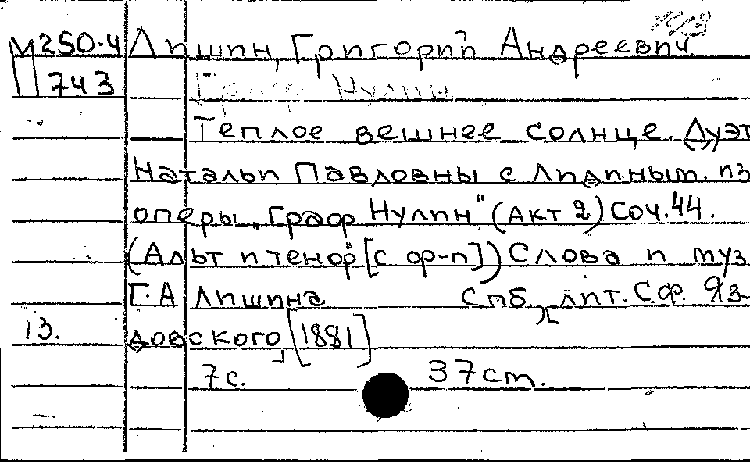 М250.4 Лишин, Григорий Андреевич
Л 743 Граф Нулин
Теплое вешнее солнце. Дуэт
Натальи Павловны с Лидиным. из
оперы „Граф Нулин" (Акт 2) Соч. 44.
(Альт и тенор [с ф-п]) Слова и муз
Г.А Лишина Спб, лит. С.Ф. Яз-
13. довского, [1881]
7с. 37 cm.